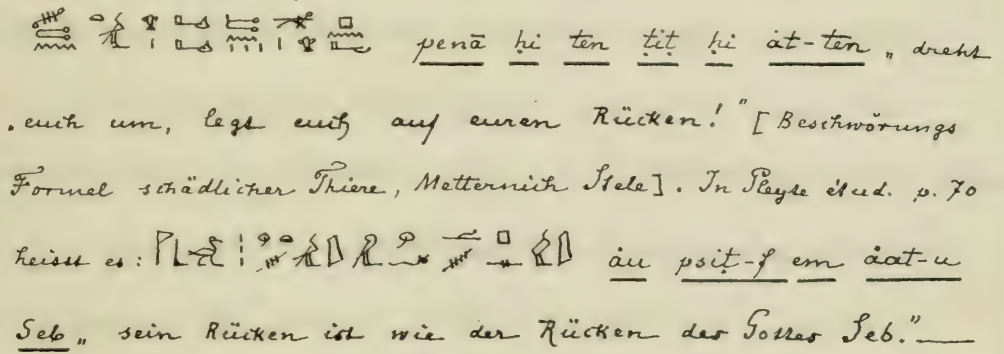 penā ḥi ten tit ḥi ȧt-ten „dreht
euch um, legt euch auf euren Rücken!" [Beschwörungs
Formel schädlicher Thiere, Metternich Stele]. In Pleyte étud. p. 70
heisst es: ȧu psiṭ-f em ȧat-u
Seb „sein Rücken ist wie der Rücken des Gottes Seb."—